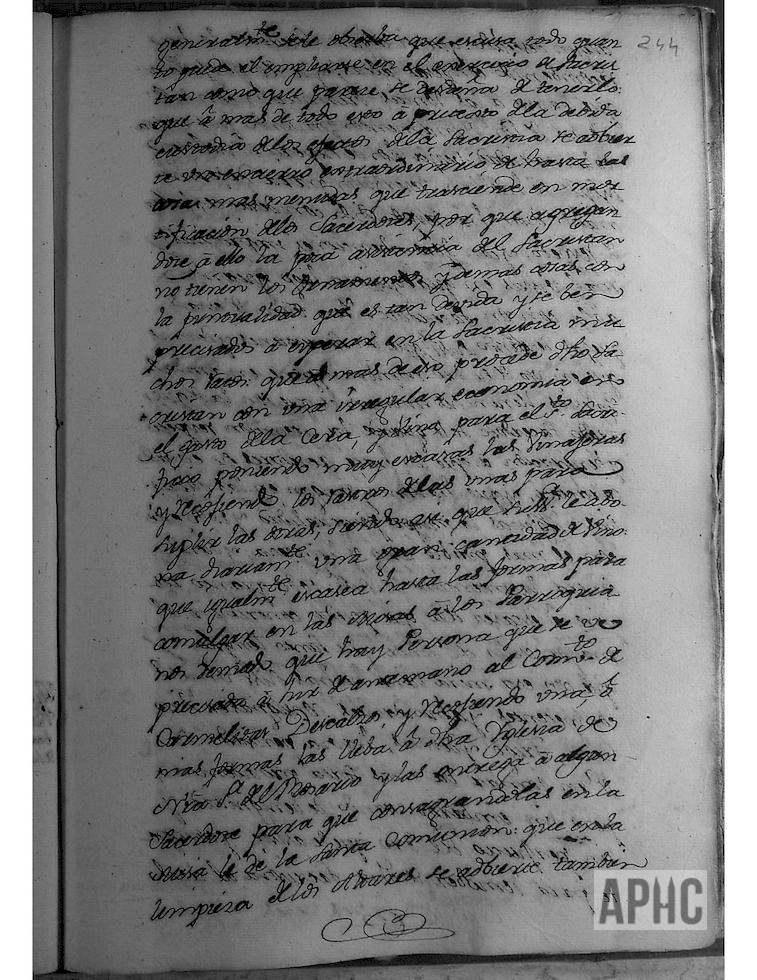 244
generalmte se le observa que escusa todo quan
to puede el emplearse en el exercicio de Sacris
tan como que parece, se desdeña de tenerlo:
que â mas de todo esto a pretexto dela devida
custodia delos efectos dela Sacristia se advier
te un encierro extraordinario de hasta las
cosas mas menudas que trasciende en mor
tificacion delos Sacerdotes, por que agregan
dose a ello la poca asistencia del Sacristan
no tienen los ornamentos y demas cosas con
la puntualidad que es tan devida y se ben
precisados a esperar en la Sacristia mu
chos ratos: que â mas de eso procede dho Sa
cristan con una irregular economia en
el gasto dela Cera, y vino para el Sto. Sacri
ficio poniendo muy escasas las Vinajeras
y recojiendo los restos delas unas para
suplir las otras, siendo asi que se le abo
na diariamte una gran cantidad de vino:
que igualmte escasea hasta las formas para
comulgar en las Misas â los Parroquia
nos demas que hay Persona que se ve
precisada â hir de antemano al Convto de
Carmelitas Descalzos y recojiendo una, ô
mas formas las lleba â dha Yglesia de
Ntra Sa del Rosario y las entrega â algun
Sacerdote para que consagrandolas en la
Missa le de la Santa Comunion: que en la
limpieza delos Altares se advierte tambien
APHC